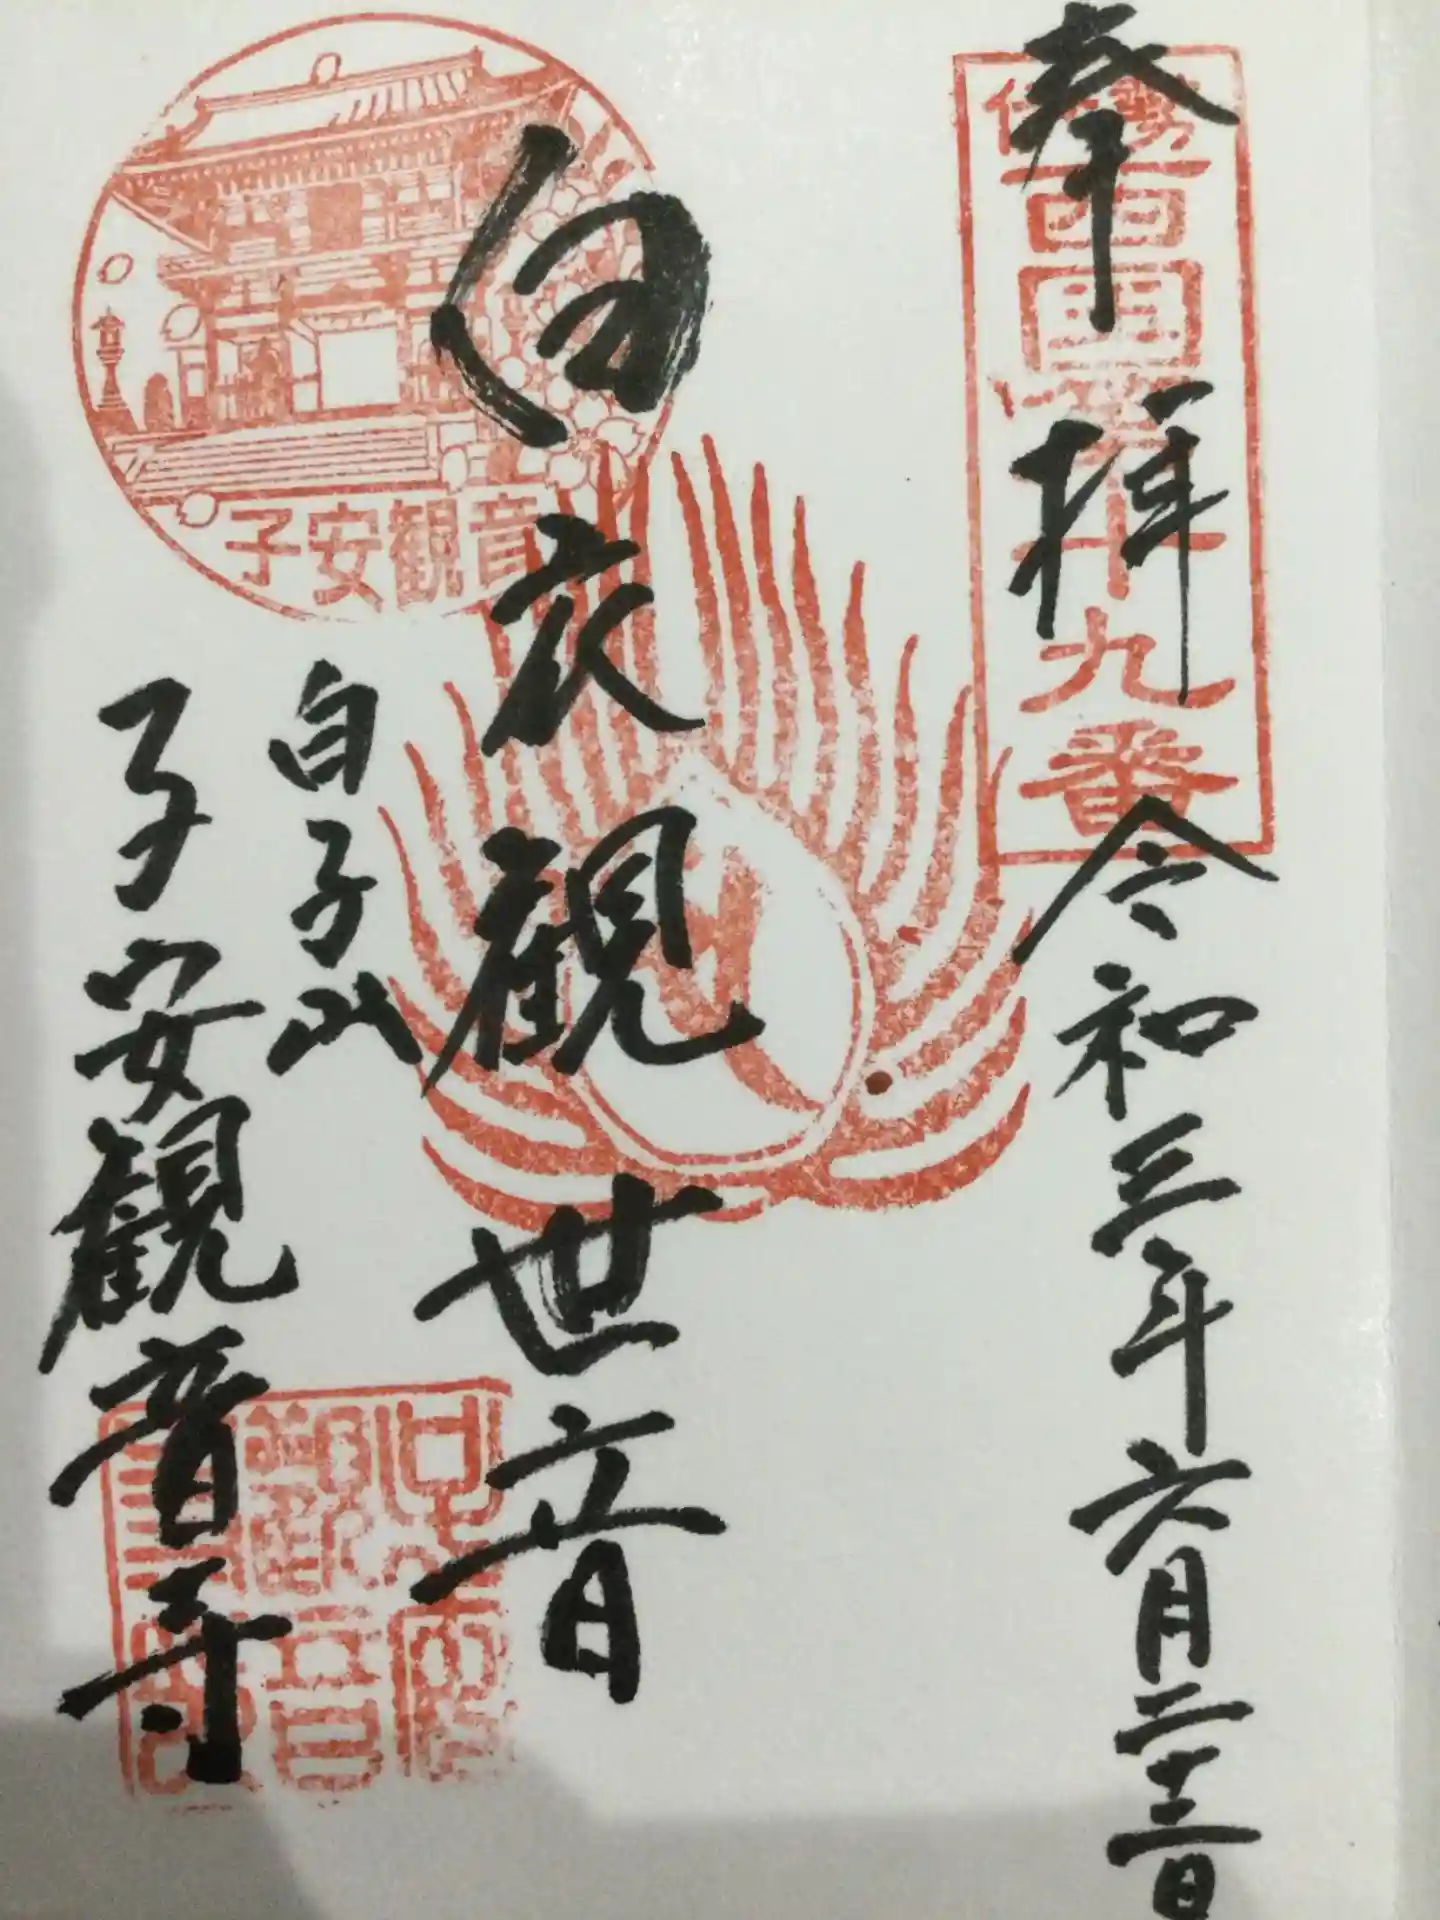 奉拝
令和三年六月二十三日
伊勢西国第十九番
白衣観世音
白子山
子安観音寺
子安観音